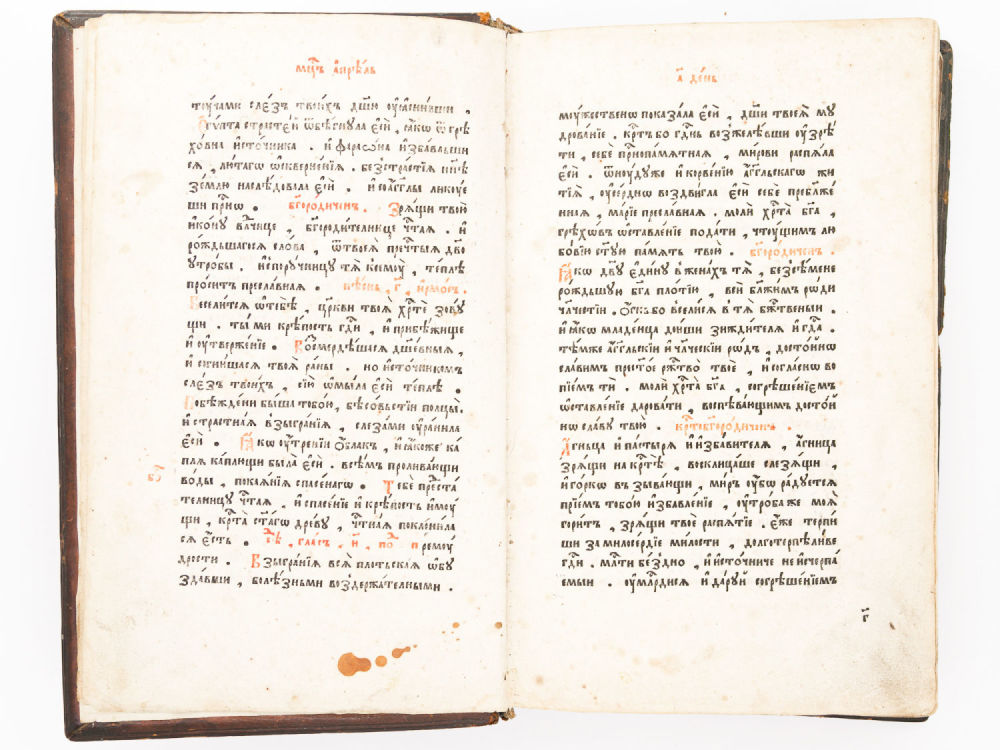 мцⷭ҇ъ а҆прѣ́ль
тоучамисле́зъ твои́хъ дш҃ю ѹ҆ꙗсни́вши ,
Є҆гѵ́пта страсте́й ѿбѣ́гнула є҆сѝ , ꙗ҆́кѡ ѿ грѣ
хо́вна и҆сто́чника . и҆ фараѡ́на и҆зба́вльши
сѧ , лю́тагѡ ѡ҆скверне́нїѧ . безстра́стїѧ нн҃ѣ
зе́млю наслѣ́довала є҆сѝ . и҆ со а҆́гг҃лы ликоуе́
ши прⷭ҇нѡ . бг҃оро́диченъ . Зрѧ́щи твою̀
и҆ко́ну влⷣчице , бг҃ороди́телнице чⷭ҇таѧ . и҆
ро́ждьшагосѧ сло́ва , ѿ твоеѧ̀ пречⷭ҇тыѧ дв҃ю
ѹ҆тро́бы . и҆ споручницу тѧ̀ є҆моу̀ , те́плѣ
про́ситъ пресла́внаѧ . пѣ́снь , г҃ , і҆рмо́съ .
Весели́тсѧ ѡ҆ тебѣ̀ , цр҃кви твоѧ̀ хрⷭ҇тѐ зову́
щи . ты̀ ми крѣ́пость гдⷭ҇и , и҆ прибѣ́жище
и҆ ѹ҆твержде́нїе . Возсмердѣ́вшаѧсѧ дш҃е́вныѧ ,
и҆ согни́вшаѧсѧ твоѧ̀ ра́ны . но и҆сто́чникомъ
сле́зъ твои́хъ , сїѝ ѡ҆мы́ла є҆сѝ те́плѣ .
Побѣжде́ни бы́ша тобо́ю , бѣсо́вьстїи полцы̀.
и҆ стра́стнаѧ взыгра́нїѧ , слеза́ми ѹ҆рани́ла
є҆сѝ . Ꙗ҆́кѡ ѹ҆́тренїи ѻ҆́блакъ , и҆ ꙗ҆́коже ка́
плѧ ка́плющи была̀ є҆сѝ . всѣ́мъ пролива́ющи
во́ды , покаѧ́нїѧ спасе́нагѡ . Тебѐ предста́
телницу чⷭ҇таѧ . и҆ спасе́нїе и҆ крѣ́пость и҆моу́
щи , крⷭ҇та̀ ст҃а́гѡ дре́ву , чⷭ҇тнаѧ поклони́ла
сѧ є҆́сть . гла́съ , и҃ , по , премоу́
дрости . Взыгра́нїѧ всѧ̀ пло́тьскаѧ ѡ҆бу
зда́вши , болѣ́зными воздержа́телными .
а҃ де́нь
моу́жественѡ показа́ла є҆сѝ , дш҃ѝ твоеѧ̀ му́
дрованїе . крⷭ҇тъ бо гдⷭ҇нь возжелѣ́вши ѹ҆зрѣ́
ти , себѐ прⷭ҇нопа́мѧтнаѧ , ми́рови распѧ́ла
є҆сѝ . ѿню́дуже и҆ ко рве́нїю а҆́гг҃льскагѡ жи
тїѧ̀ , ѹ҆се́рднѡ воздви́гла є҆сѝ себѐ пребл҃же́
ннаѧ , марі́е пресла́внаѧ . молѝ хрⷭ҇та̀ бг҃а ,
грѣхо́въ ѡ҆ставле́нїе пода́ти , чтоу́щимъ лю
бо́вїю ст҃у́ю па́мѧть твою̀ . бг҃оро́диченъ .
Ꙗ҆́кѡ дв҃у є҆ди́ну в женахъ тѧ̀ , безсѣ́мене
ро́ждьшую бг҃а пло́тїю , всѝ бл҃жи́мъ ро́ди
чл҃честїи . ѻ҆́гнь бо всели́сѧ в тѧ̀ бжⷭ҇твены́и .
и҆ ꙗ҆́кѡ младе́нца дои́ши зижди́телѧ и҆ гдⷭ҇а .
тѣ́мже а҆́гг҃льскїи и҆ чл҃ческїи ро́дъ , досто́йнѡ
сла́вимъ прест҃о́е ржⷭ҇тво̀ твоѐ , и҆ согла́снѡ во
пїе́мъ ти . молѝ хрⷭ҇та̀ бг҃а , согрѣше́нїемъ
ѡ҆ставле́нїе дарова́ти , воспѣва́ющимъ досто́й
нѡ сла́ву твою̀ . крⷭ҇тобг҃оро́диченъ .
А҆́гньца и҆ па́стырѧ и҆ и҆зба́вителѧ , а҆́гница
зрѧ́щи на крⷭ҇тѣ̀ , восклица́ше слезѧ́щи ,
и҆ го́ркѡ взыва́ющи , ми́ръ ѹ҆́бѡ ра́дуетсѧ
прїе́мъ тобо́ю и҆збавле́нїе , ѹ҆тро́ба же моѧ̀
гори́тъ , зрѧ́щи твоѐ распѧ́тїе . є҆́же терпи́
ши за милосе́рдїе ми́лости , долготерпѣ́ливе
гдⷭ҇и . мл҃ти бе́здно , и҆ и҆сто́чниче не и҆сче́рпа
емыи . ѹ҆млⷭ҇рдисѧ и҆ да́руй согрѣше́нїемъ
г҃